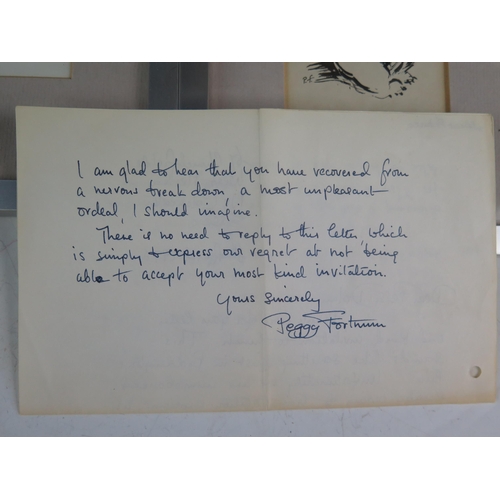 P.F.
I am glad to hear that you have recovered from
a nervous break down, a most unpleasant
ordeal, I should imagine.
There is no need to reply to this letter which
is simply to express our regret at not being
able to accept your most kind invitation.
Yours Sincerely
Peggy Fortnum